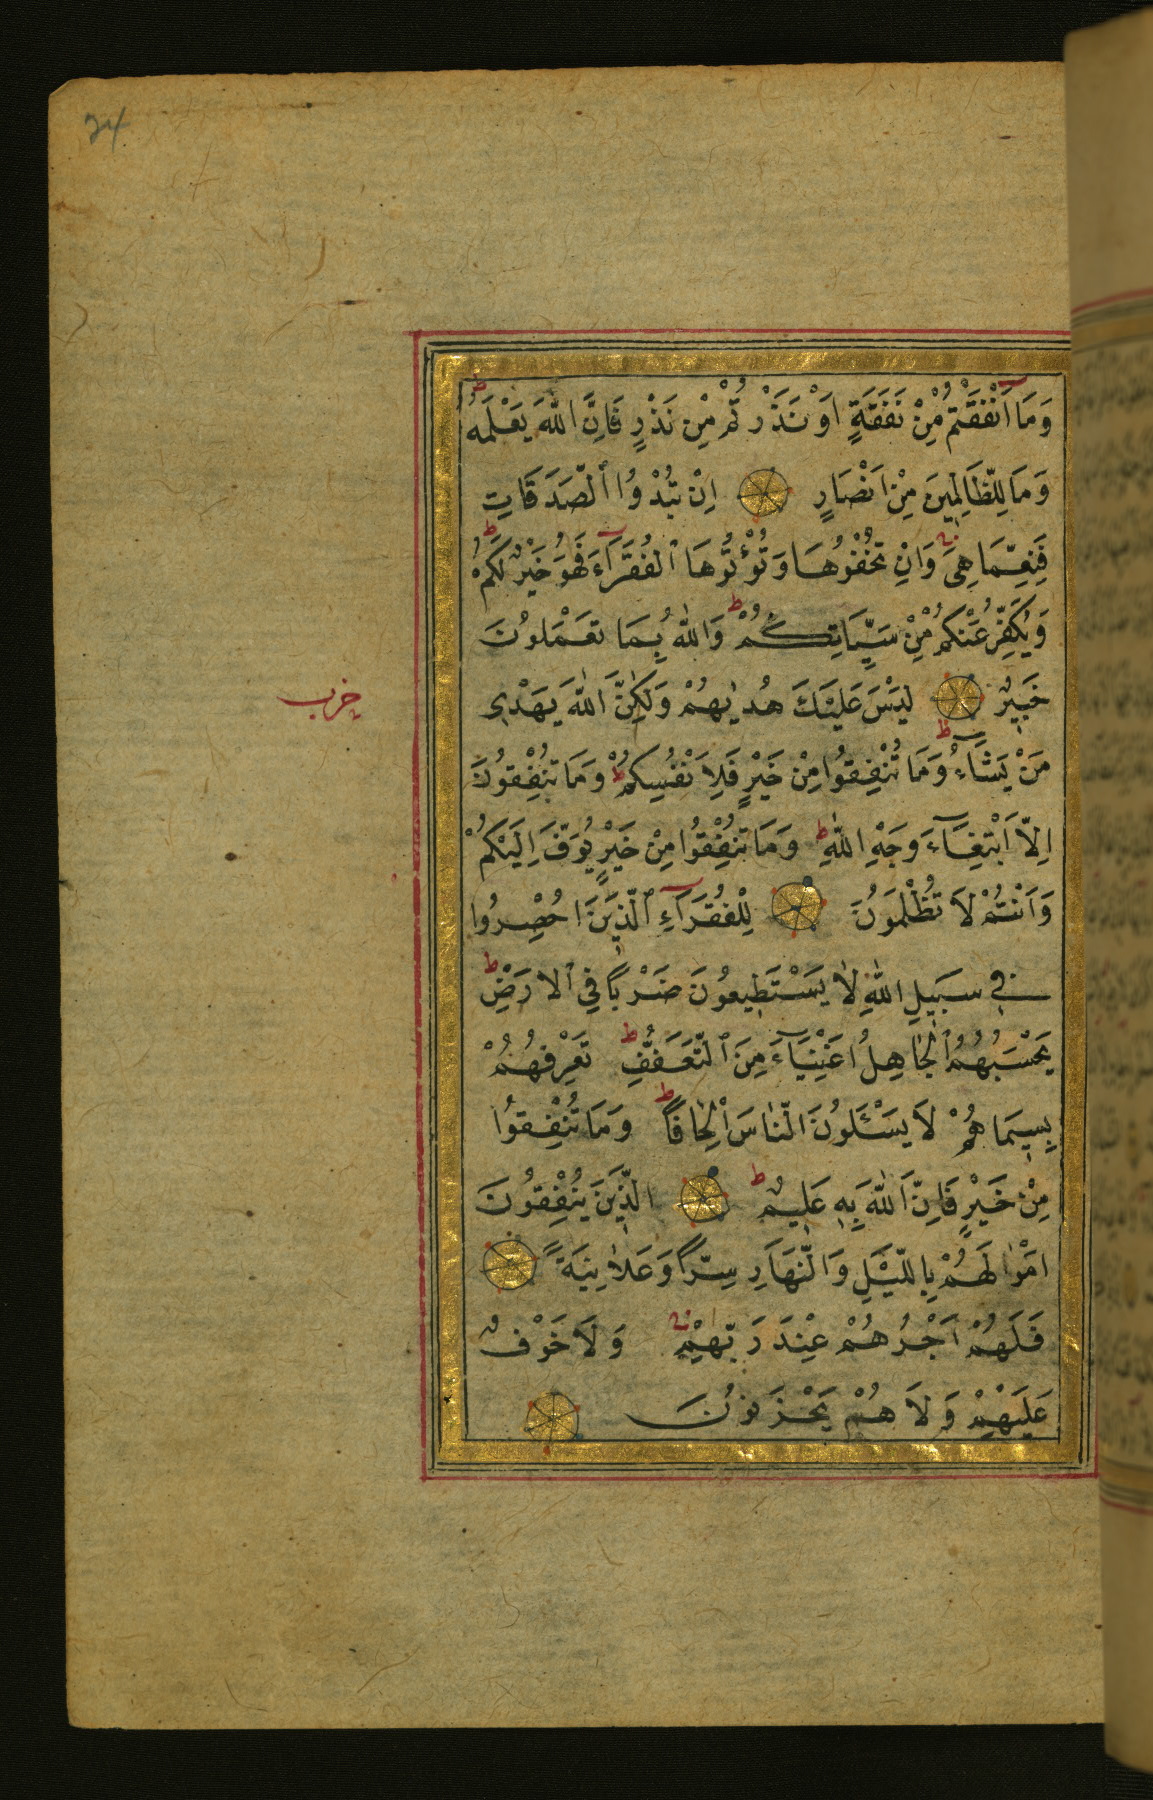 24
وَمَا اَنْفَقْتُمْ مِنْ نَفَقَةٍ اَوْ نَذَرْتُمْ مِنْ نَذْرٍ فَاِنَّ اللّٰهَ يَعْلَمُهُ
وَمَا لِلظَّالِمِينَ مِنْ اَنْصَارٍ اِنْ تُبْدُوا الصَّدَقَاتِ
فَنِعِمَّا هِيَ وَاِنْ تُخْفُوهَا وَتُؤْتُوهَا الْفُقَرَاءَ فَهُوَ خَيْرٌ لَكُمْ
وَيُكَفِّرُ عَنْكُمْ مِنْ سَيِّاٰتِكُمْ وَاللّٰهُ بِمَا تَعْمَلُونَ
خَبِيرٌ لَيْسَ عَلَيْكَ هُدٰيهُمْ وَلٰكِنَّ اللّٰهَ يَهْدِي
مَنْ يَشَاءُ وَمَا تُنْفِقُوا مِنْ خَيْرٍ فَلِاَنْفُسِكُمْ وَمَا تُنْفِقُونَ
اِلَّا ابْتِغَاءَ وَجْهِ اللّٰهِ وَمَا تُنْفِقُوا مِنْ خَيْرٍ يُوَفَّ اِلَيْكُمْ
وَاَنْتُمْ لَا تُظْلَمُونَ لِلْفُقَرَاءِ الَّذِينَ اُحْصِرُوا
فِي سَبِيلِ اللّٰهِ لَا يَسْتَطِيعُونَ ضَرْبًا فِي الْاَرْضِ
يَحْسَبُهُمُ الْجَاهِلُ اَغْنِيَاءَ مِنَ التَّعَفُّفِ تَعْرِفُهُمْ
بِسِيمَاهُمْ لَا يَسْـَٔلُونَ النَّاسَ اِلْحَافًا وَمَا تُنْفِقُوا
مِنْ خَيْرٍ فَاِنَّ اللّٰهَ بِهِ عَلِيمٌ الَّذِينَ يُنْفِقُونَ
اَمْوَالَهُمْ بِاللَّيْلِ وَالنَّهَارِ سِرًّا وَعَلَانِيَةً
فَلَهُمْ اَجْرُهُمْ عِنْدَ رَبِّهِمْ وَلَا خَوْفٌ
عَلَيْهِمْ وَلَا هُمْ يَحْزَنُونَ
حزب